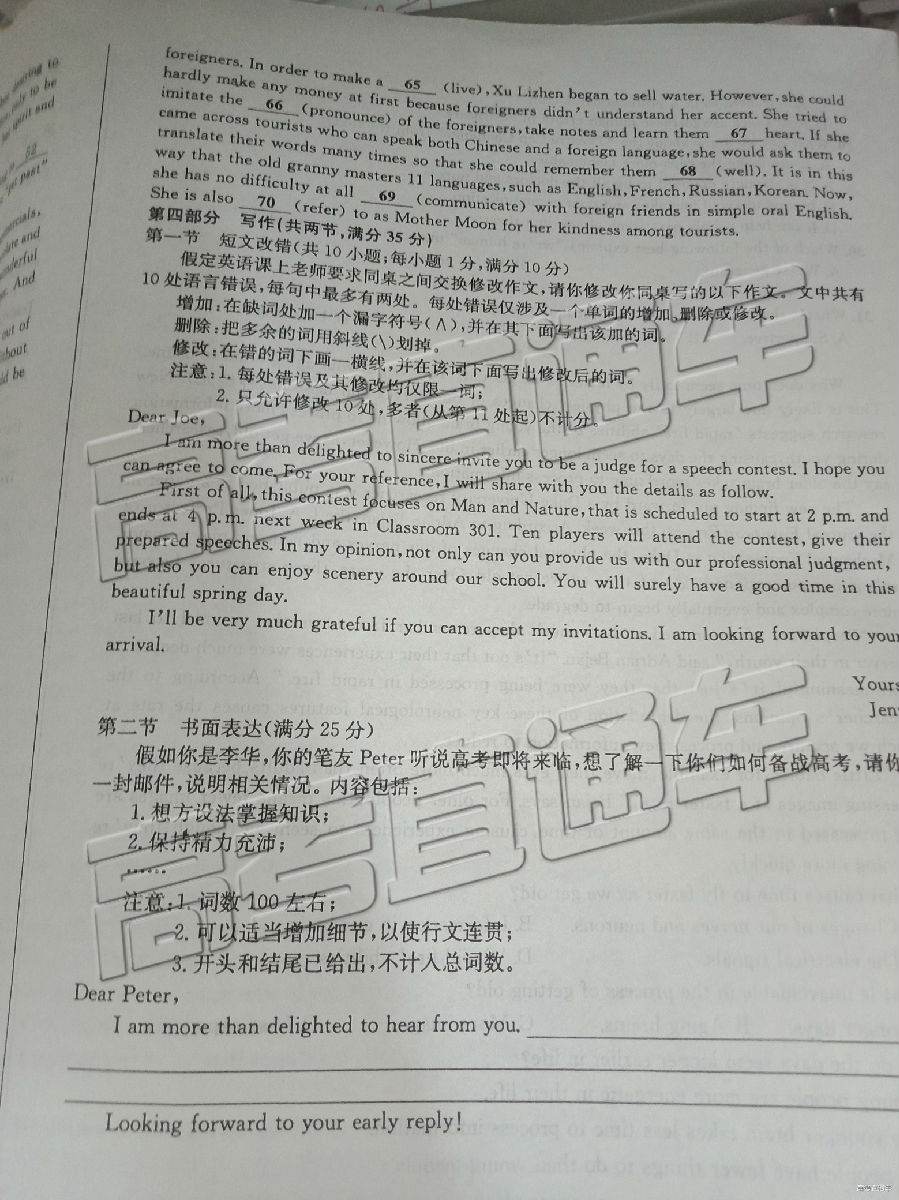 foreigners. In order to make a 65 (live), Xu Lizhen began to sell water. However, she could
hardly make any money at first because foreigners didn't understand her accent. She tried to
imitate the 66 (pronounce) of the foreigners, take notes and learn them 67 heart. If she
came across tourists who can speak both Chinese and a foreign language, she would ask them to
translate their words many times so that she could remember them 68 (well). It is in this
way that the old granny masters 11 languages, such as English, French, Russian, Korean. Now,
she has no difficulty at all 69 (communicate) with foreign friends in simple oral English.
She is also 70 (refer) to as Mother Moon for her kindness among tourists.
第四部分 写作(共两节,满分35分)
第一节 短文改错(共10小题;每小题1分,满分10分)
假定英语课上老师要求同桌之间交换修改作文,请你修改你同桌写的以下作文。文中共有
10处语言错误,每句中最多有两处。每处错误仅涉及一个单词的增加、删除或修改。
增加:在缺词处加一个漏字符号(∧),并在其下面写出该加的词。
删除:把多余的词用斜线(\)划掉。
修改:在错的词下画一横线,并在该词下面写出修改后的词。
注意:1. 每处错误及其修改均仅限一词;
2. 只允许修改10处,多者(从第11处起)不计分。
Dear Joe,
I am more than delighted to sincere invite you to be a judge for a speech contest. I hope you
can agree to come. For your reference, I will share with you the details as follow.
First of all, this contest focuses on Man and Nature, that is scheduled to start at 2 p.m. and
ends at 4 p.m. next week in Classroom 301. Ten players will attend the contest, give their
prepared speeches. In my opinion, not only can you provide us with our professional judgment,
but also you can enjoy scenery around our school. You will surely have a good time in this
beautiful spring day.
I'll be very much grateful if you can accept my invitations. I am looking forward to your
arrival.
Yours
Jen
第二节 书面表达(满分25分)
假如你是李华,你的笔友Peter听说高考即将来临,想了解一下你们如何备战高考,请你
一封邮件,说明相关情况。内容包括:
1. 想方设法掌握知识;
2. 保持精力充沛;
......
注意:1. 词数100左右;
2. 可以适当增加细节,以使行文连贯;
3. 开头和结尾已给出,不计入总词数。
Dear Peter,
I am more than delighted to hear from you.
Looking forward to your early reply!
高考直通车
高考直通车